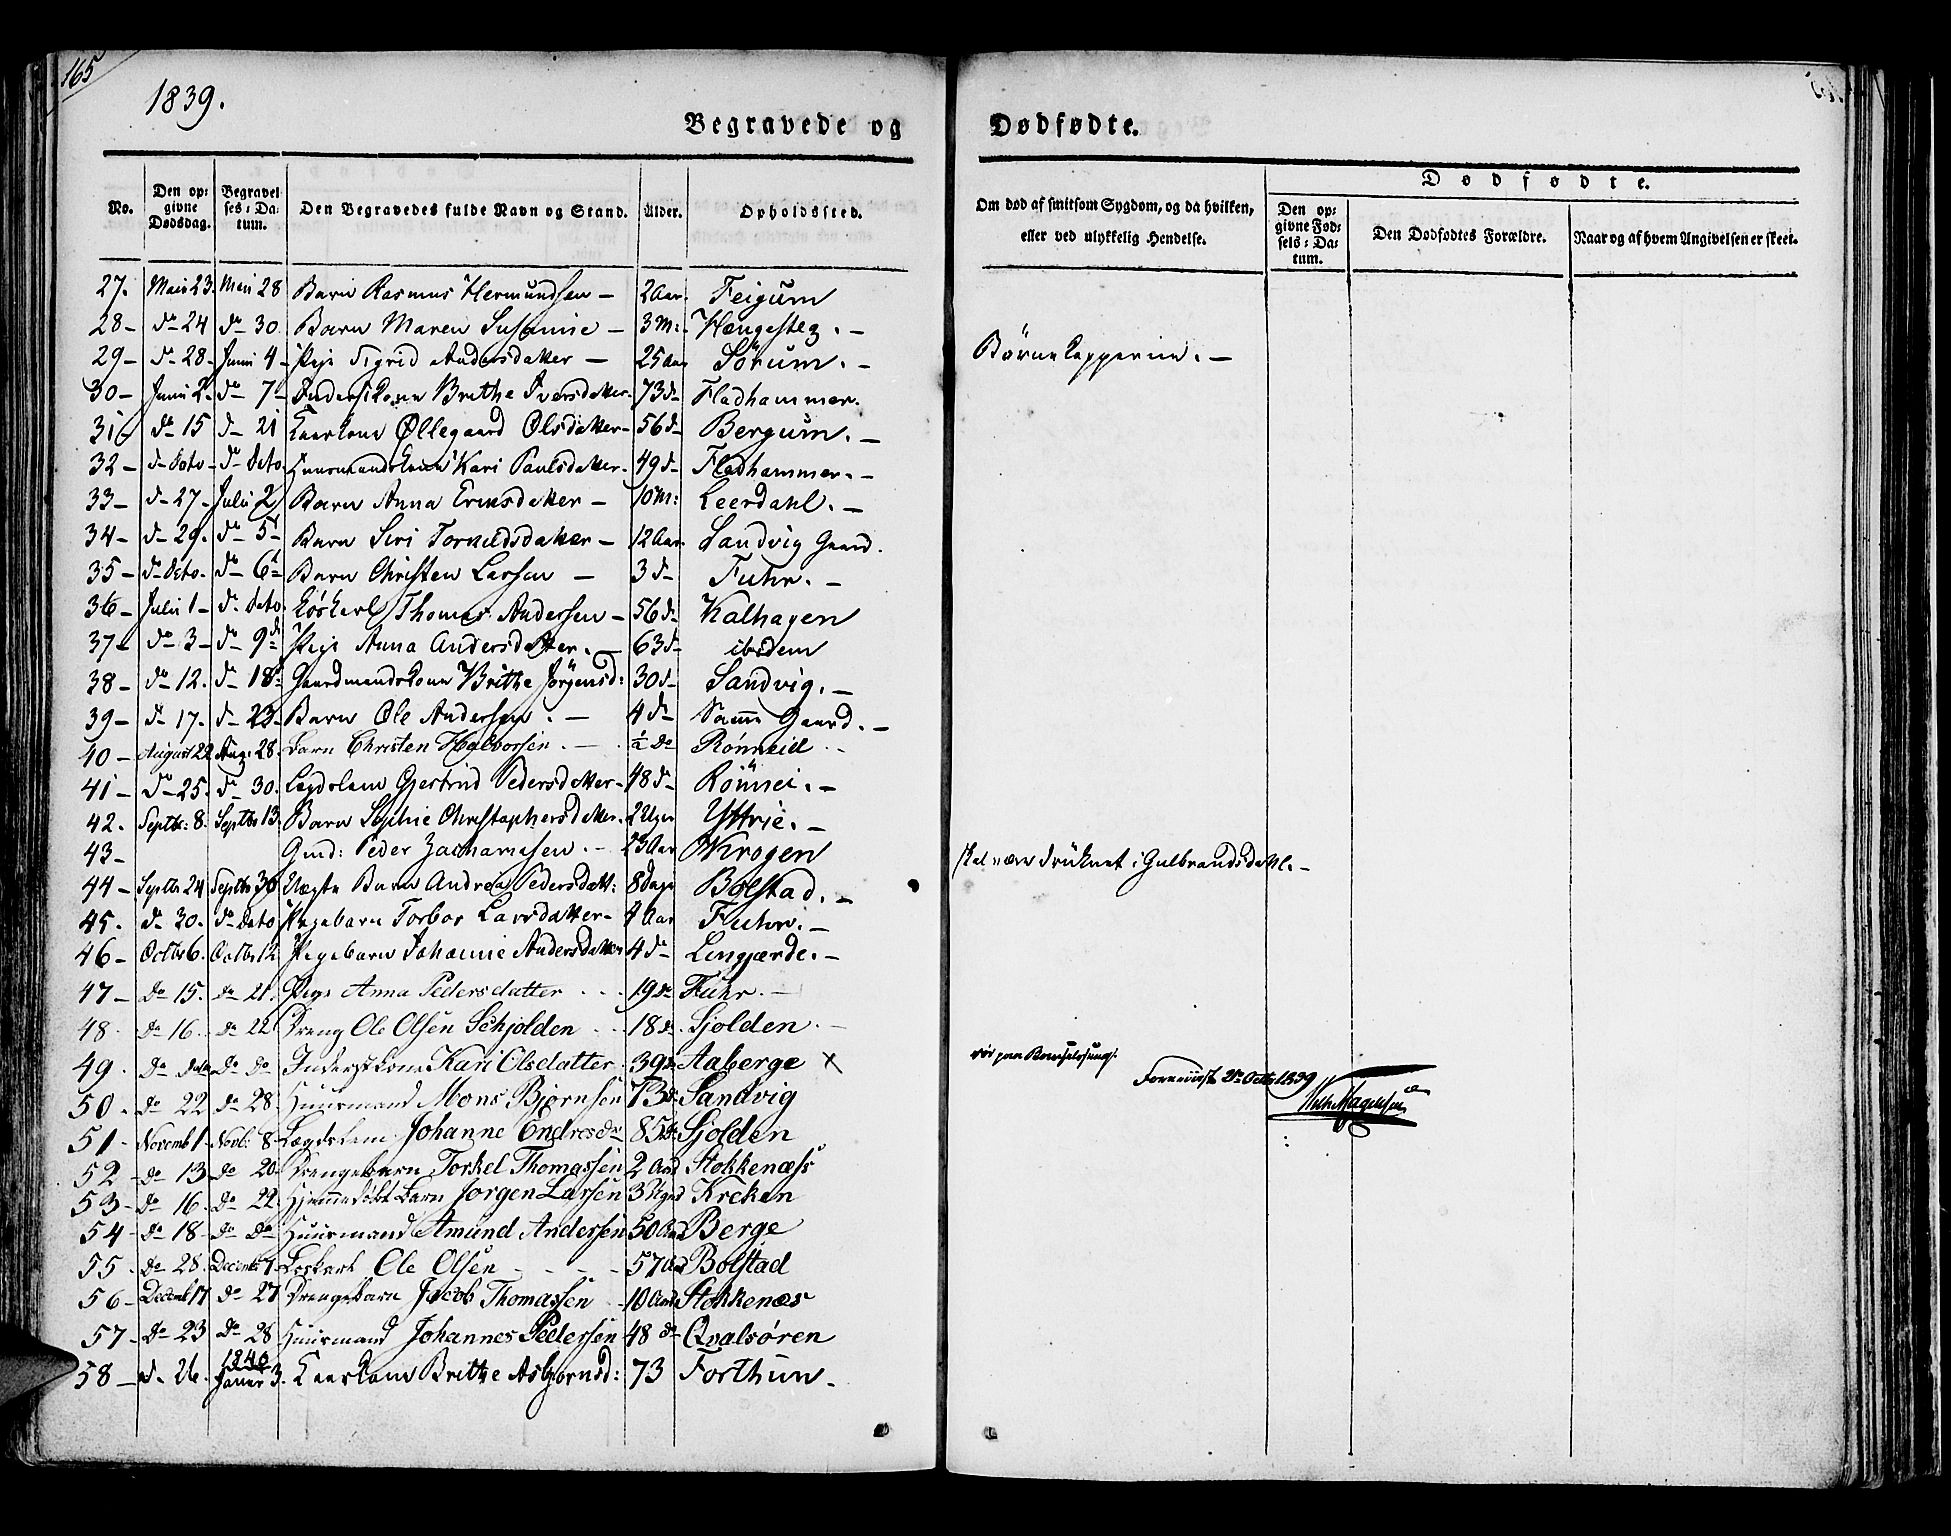 165
1839.
Begravede og Dødfødte.
No. Den opgivne Dødsdag. Begravelses-Datum. Den Begravedes fulde Navn og Stand. Alder. Opholdssted. Om død af smitsom Sygdom, og da hvilken, eller ved ulykkelig Hendelse. Dødfødte. Den opgivne Fødsels-Datum. Den Dødfødtes Forældre. Naar og af hvem Angivelsen er skeet.
27. Maii 23. Maii 28 Barn Rasmus Hermundsen – 2 Aar. Feigum
28 – do 24 do 30. Barn Maren Susanne – 3 M: Hængesteg. –
29 – d– 28 – Junii 4 – Pige Sigrid Andersdatter – 25 Aar Sörum. – Børnekopperne. –
30 – Junii 2 – do 7 – Inderstkone Brithe Iversdatter – 73 d– Fladhammer.
31 – do 15 d– 21 Kaarkone Øllegaard Olsdatter – 56 d– Bergum. –
32 – d– Dito – d– Dito. Huusmandskone Kari Paulsdatter – 49 d– Fladhammer. –
33 – d– 27 – Julii 2 Barn Anna Erensdatter – 10 M: Leerdahl. –
34 – d– 29. do 5 – Barn Siri datter – 12 Aar. Sandvig Gaard.
35 – do Dito. do 6 – Barn Christen Larsen – 3 d– Fuhr. –
36 – Julii 1 – d– Dito. Løskarl Thomas Andersen – 56 d– Kalhagen
37 – do 3 – do 9 Pige Anna Andersdatter. – 63 d– ibidem
38 – do 12. d– 18. Gaardmandskone Brithe Jörgensd: 30 d– Sandvig. –
39 – d– 17. d– 23 – Barn Ole Andersen. – 4 d– Samme Gaard. –
40 – August 22 Aug: 28. Barn Christen Halvorsen. – ½ Do Rönneid
41 – do 25. d– 30. Lægdslem Gjertrud Pedersdatter – 48 d– Rönnei. –
42. Septbr: 8. Septbr 13. Barn Sophie Christophersdatter. 2 Uger Yttrie. –
43 – Gmd: Peder Zachariasen. – 23 Aar Krogen skal være drüknet i Gulbrandsdahl. –
44 – Septbr 24 Septbr 30 Uægte Barn Andrea Pedersdatt: 8 Dage Bolstad. –
45. d– 30. do Dito Pigebarn Torbor Larsdatter – 4 Aar Fuhr. –
46 – Octbr 6. Octbr 12 Pigebarn Johanne Andersdatter 4 d– Lingjærde. –
47 – Do 15. do 21. Pige Anna Pedersdatter 19 do Fuhr. –
48. do 16. do 22 Dreng Ole Olsen Schjolden 18 do. Sjolden. –
49. do dito do do Inderstkone Kari Olsdatter 39 do Aaberge x død paa Barselseng.
50. do 22 do 28. Huusmand Mons Bjørnsen 73 do Sandvig Octb 1839
51 – Novemb 1. Novb: 8 – Lægdslem Johanne Endresdr 85 do Sjolden
52 – do 13 do 20 – Drengebarn Torkel Thomassen 2 Aar Stokkenæss
53 – do 16. do 22. Hjemmedøbt Barn Jorgen Larsen 3 Uger Kroken
54 – do 18 – do do Huusmand Amund Andersen 50 Aar Berge
55 – do 28. Decemb 7 – Løskarl Ole Olsen – – – – 57 Aar Bolstad
56 – Decemb 17 do 27 Drengebarn Jacob Thomassen 10 Aar Stokkenæs
57 – do 23 do 28 Huusmand Johannes Pedersen 48 do Qvalsøren
58 – d. 26. 1840 Januar 3. Kaarkone Brithe Asbjornsd: 73 Forthun –